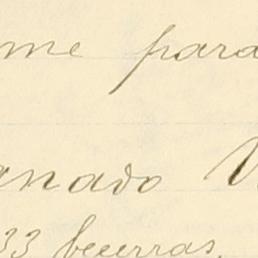 me para
anado V
33 becerras.